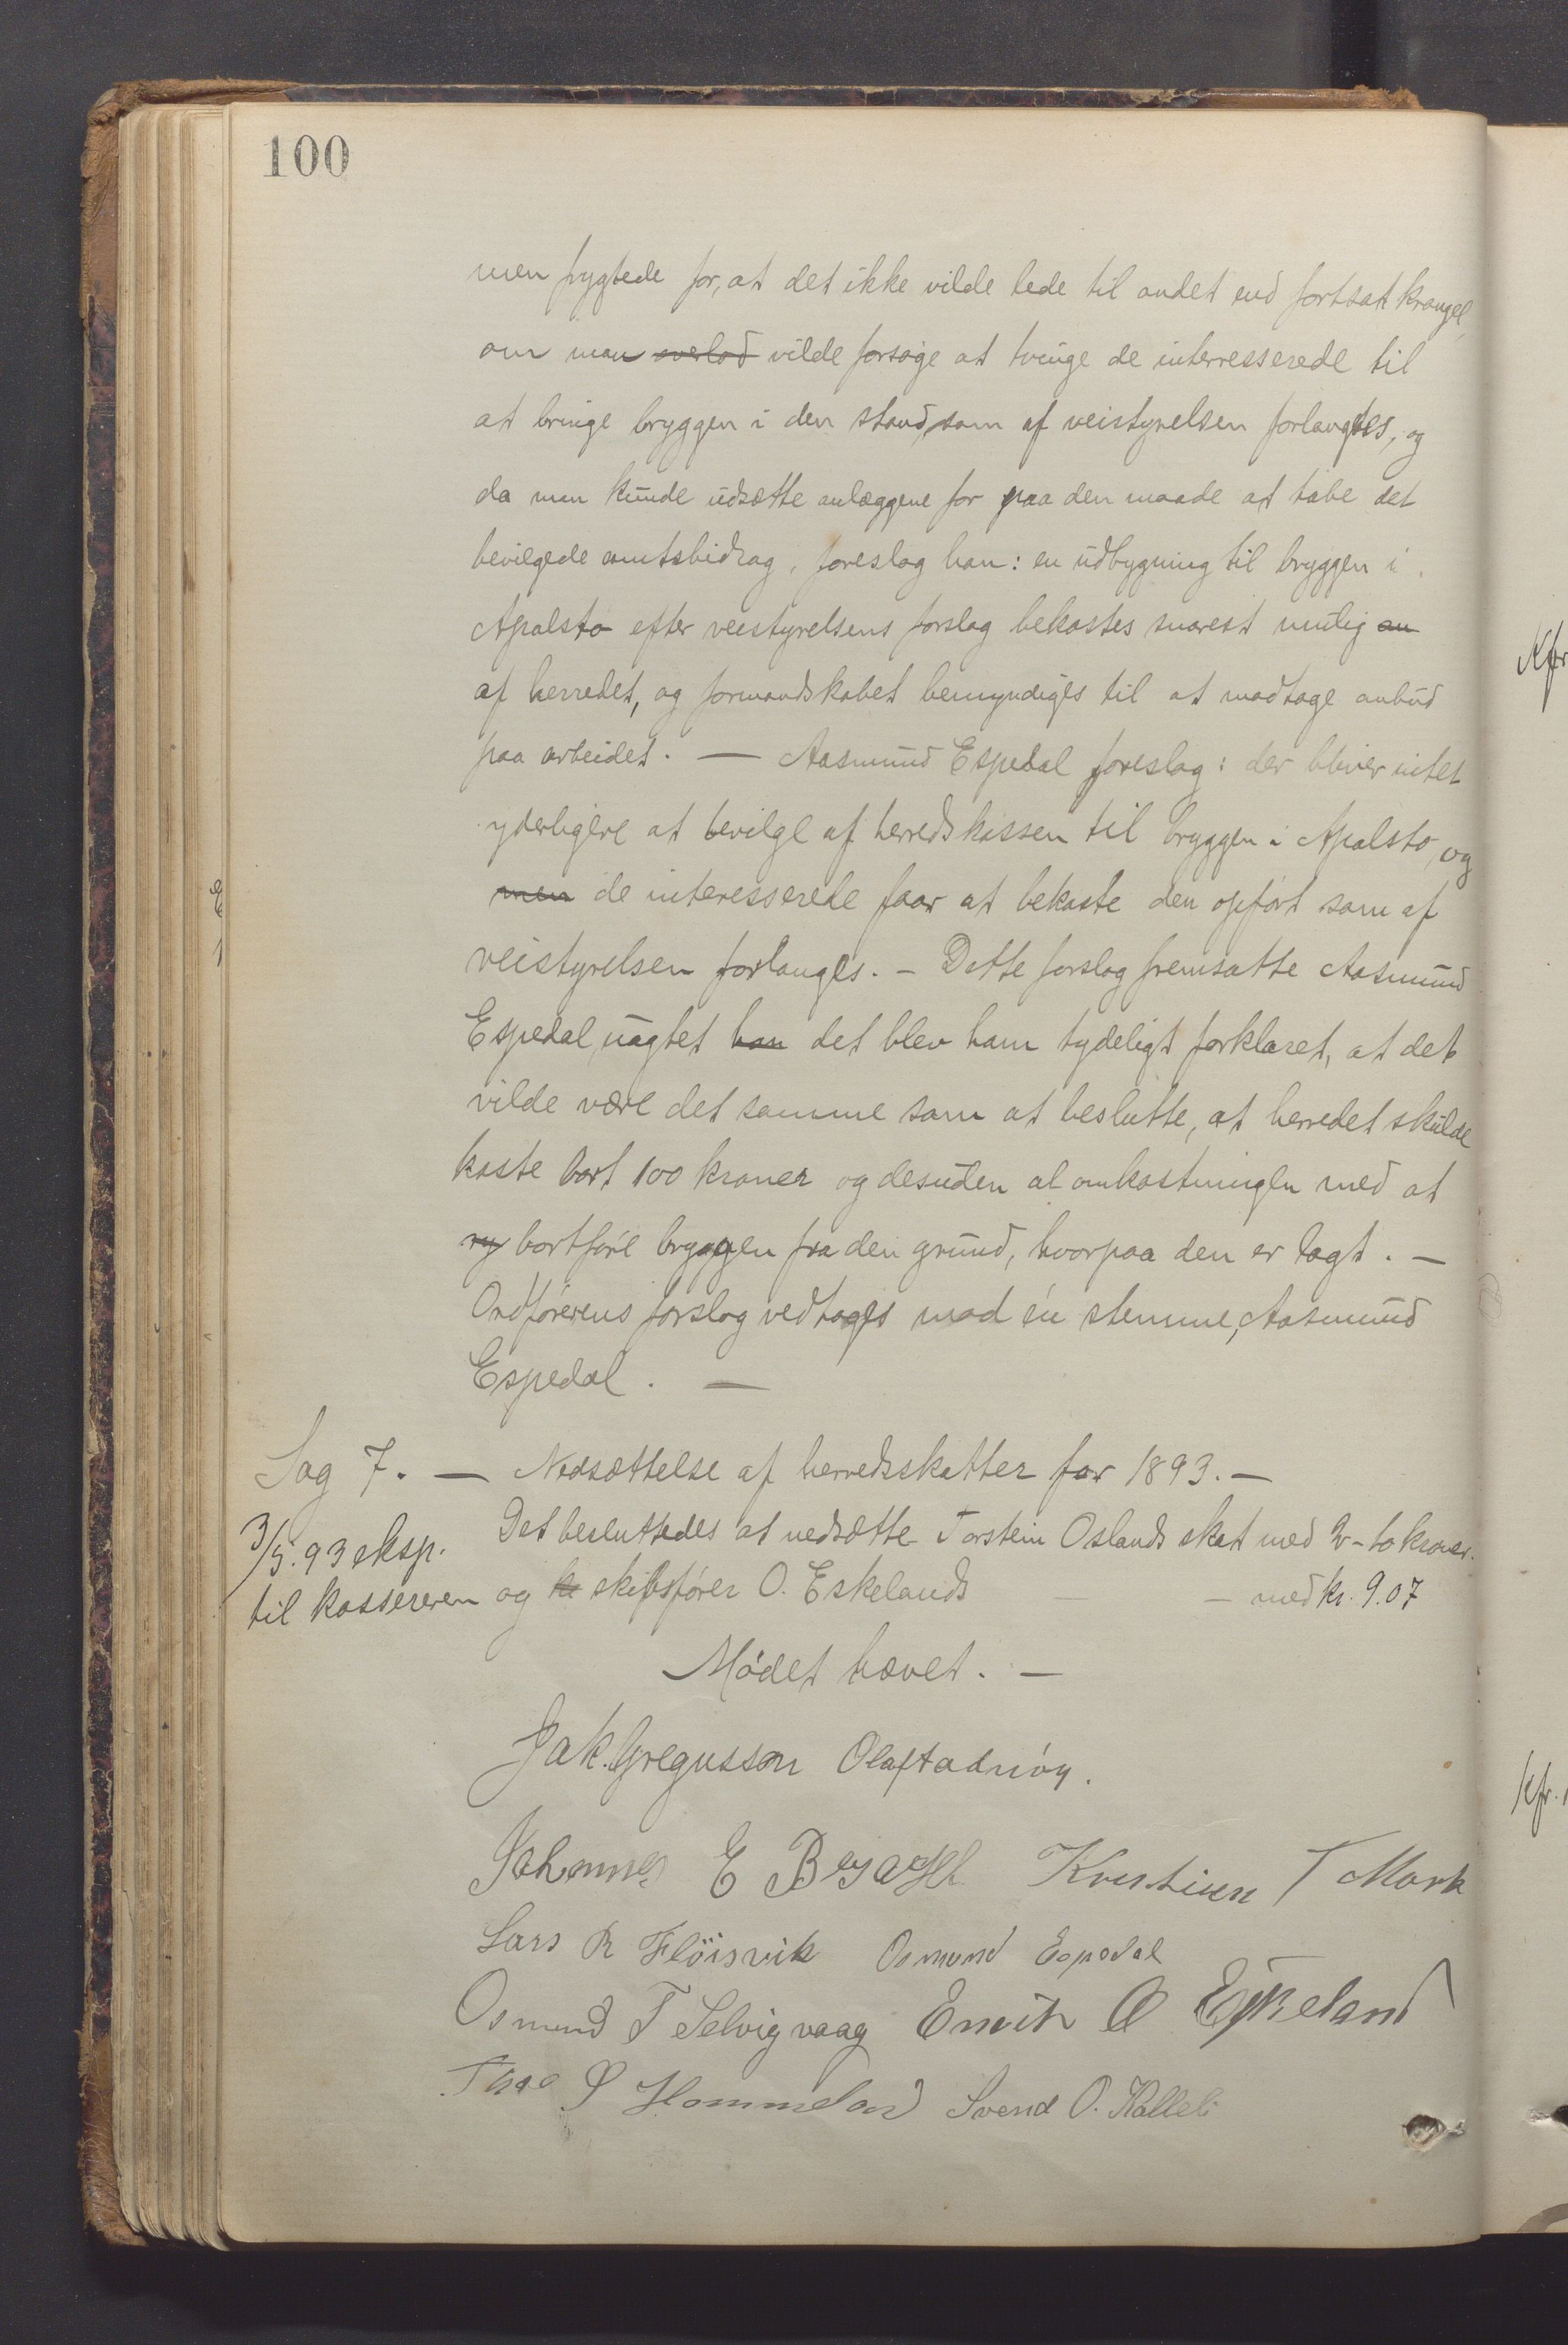 100
men frygtede for, at det ikke vilde lede til andet end fortsat krangel,
om man overlod vilde forsøge at tvinge de interresserede til
at bringe bryggen i den stand, som af veistyrelsen forlangtes, og
da man kunde udsætte anlæggene for paa den maade at tabe det
bevilgede amtsbidrag, foreslog han: en udbygning til bryggen i
Apalstø efter veistyrelsens forslag bekostes snarest mulig an
af herredet, og formandskabet bemyndiges til at modtage anbud
paa arbeidet. — Aasmund Espedal foreslog: der bliver intet
yderligere at bevilge af herredskassen til bryggen i Apalstø, og
men de interesserede faar at bekoste den opført som af
veistyrelsen forlanges. — Dette forslag fremsatte Aasmund
Espedal, uagtet han det blev ham tydeligt forklaret, at det
vilde være det samme som at beslutte, at herredet skulde
kaste bort 100 kroner og desuden al omkostningen med at
ry bortføre bryggen fra den grund, hvorpaa den er lagt. —
Ordførerens forslag vedtoges mod én stemme, Aasmund
Espedal. —
Sag 7. — Nedsættelse af herredsskatter for 1893. —
Det besluttedes at nedsætte Torstein Oslands skat med 2 - to kroner.
3/5.93 eksp.
til kassereren
og skibsfører O. Eskelands — — med kr. 9.07
Mødet hævet. —
Jak. Gregusson Olaf Tadnöy.
Johannes E Kristian T Mørk
Lars R Flöisvik Osmund Espedal
Osmund T Selvigvaag O Eskeland
Hommeland Svend O. Kalleli
Kfr
kfr.